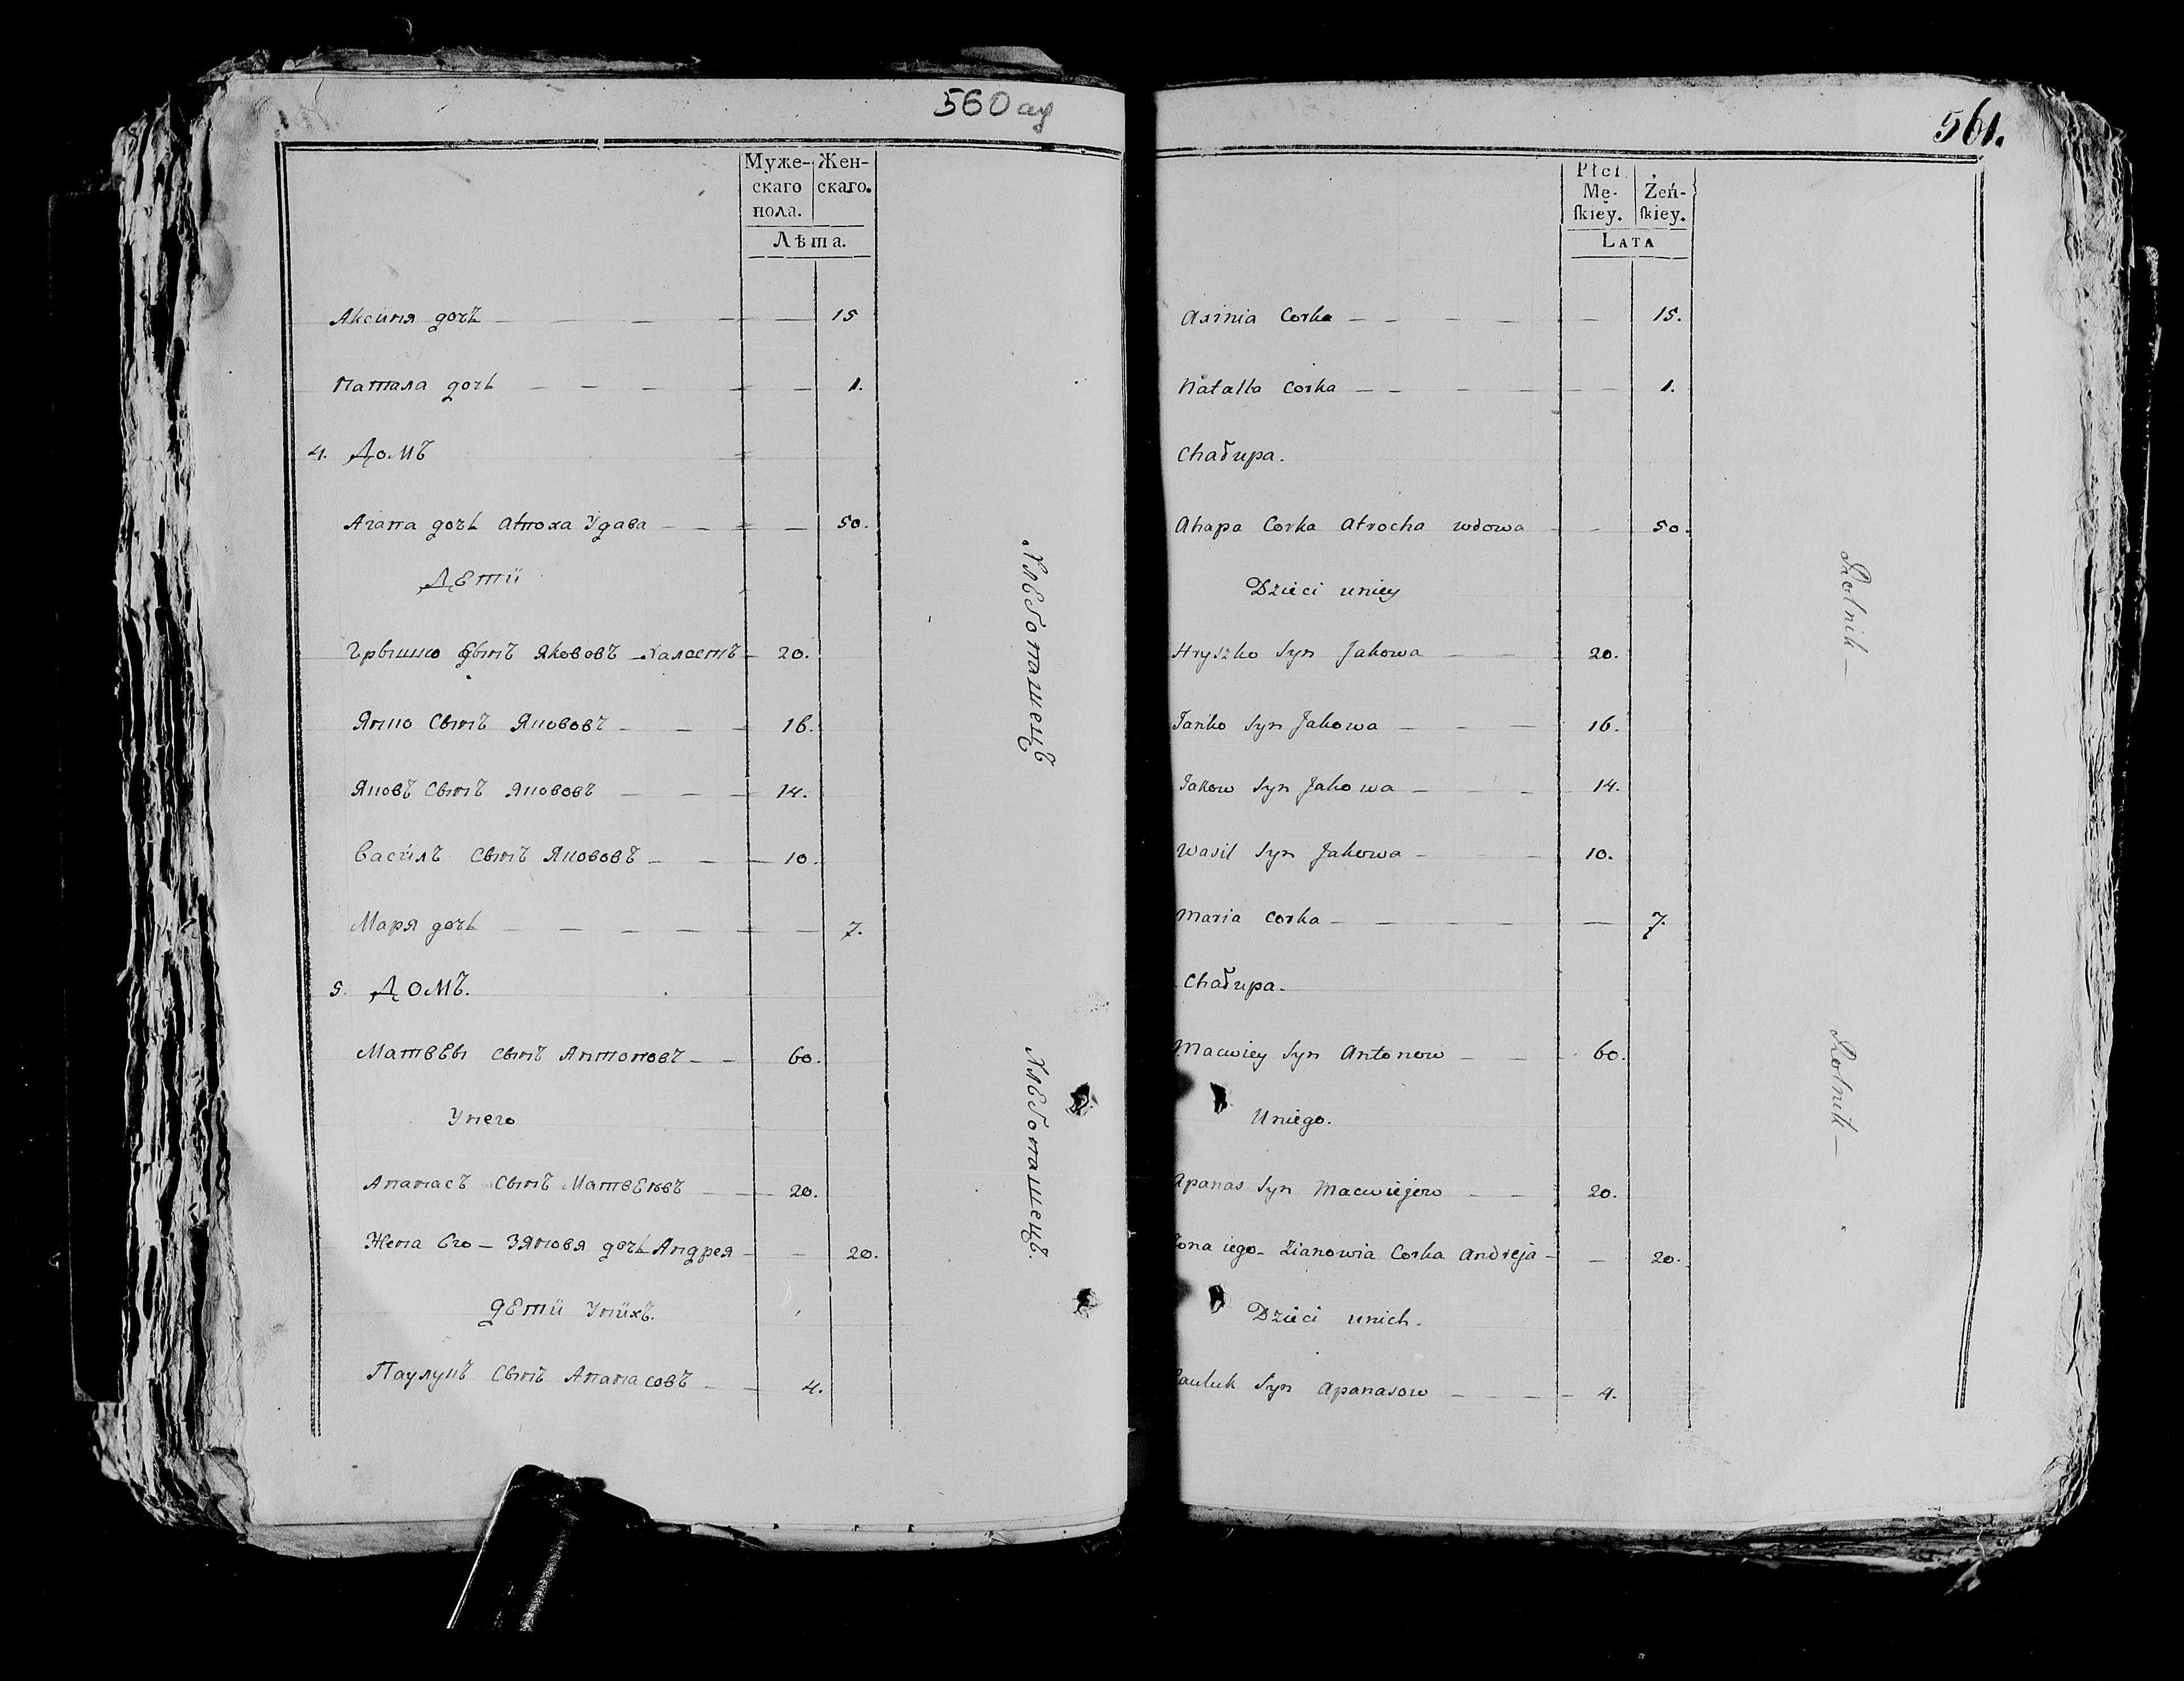 560 ау
Муже- Жен-
скаго скаго.
пола.
Лѣта.
Аксиня дочъ — — — — — — 15
Натала дочь — — — — — 1.
4. Домъ
Агапа дочь Удава — — — — 50.
Дети
сынъ Якововъ 20.
Янко Сынъ Якововъ — — — 16.
Яковъ Сынъ Якововъ — — — 14.
Василъ Сынъ Якововъ — — — 10.
Маря дочь — — — — — — 7.
5. Домъ.
Матвѣы сынъ Антоновъ — — 60.
Унего
Апанасъ Сынъ — — 20.
Жена Его — Зяновя дочь Андрея — — 20.
дети Унихъ.
Паулукъ Сынъ Апанасовъ — — 4.
Хлебопашецъ
Хлебопашецъ.
561.
Płci
Mę- Żeń-
ſkiey. ſkiey.
Lata
Axinia Corka — — — — — — 15.
Natalla Corka — — — — — — 1.
Chałupa.
Ahapa Corka Atrocha wdowa — - 50.
Dzieci uniey
Hryszko Syn Jakowa — — — 20.
Jańko Syn Jakowa — — — 16.
Jakow Syn Jakowa — — — 14.
Wasil Syn Jakowa — — 10.
Maria Corka — — — — — — 7.
Chałupa.
Macwiey Syn Antonow — — — 60.
Uniego.
Apanas Syn Macwiejew — — — 20.
Żona iego — Zianowia Corka Andreja — — 20.
Dzieci unich.
Pauluk Syn Apanasow — — — 4.
Rolnik —
Rolnik —